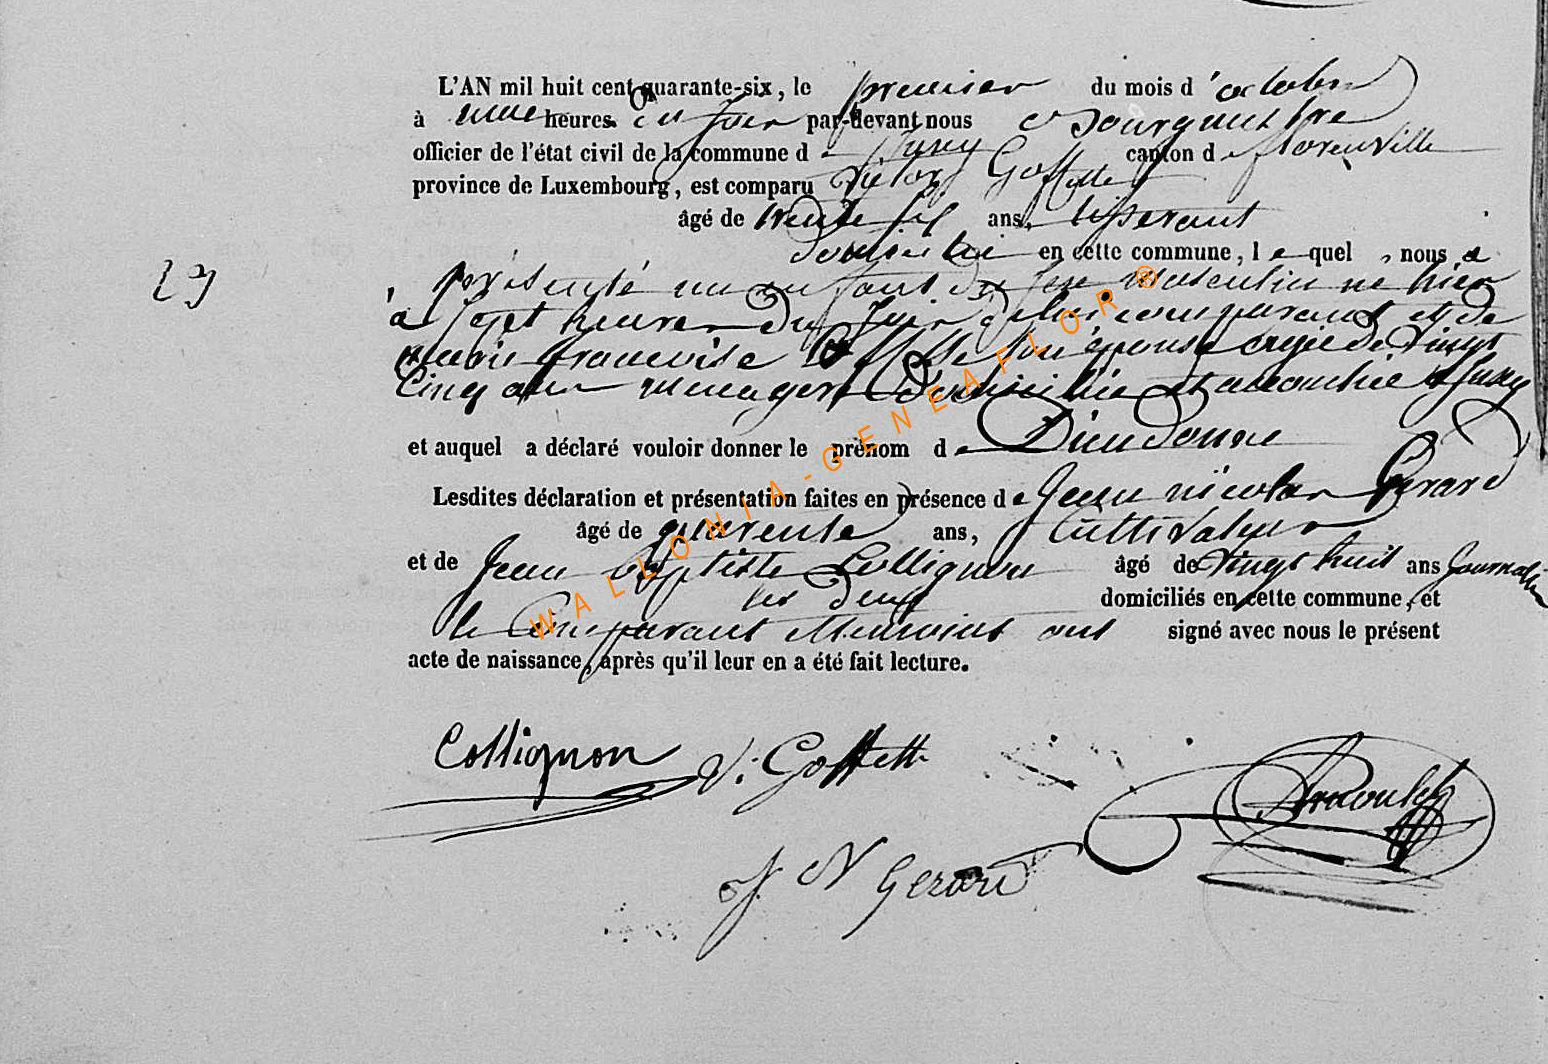 L'AN mil huit cent quarante-six, le premier du mois d' octobre
à une heures du soir par-devant nous Bourguestre
officier de l'état civil de la commune d e Jusey canton d e florenville
province de Luxembourg, est comparu Victor Goffette
âgé de trente six ans, tisserant
domicilié en cette commune, l e quel nous a
29 présenté un enfant du sexe masculin né hier
à sept heures du soir de lui comparant et de
marie francoise Goffette son épouse agée de vingt
cinq ans menagere domiciliée et accouchée à Jusey
et auquel a déclaré vouloir donner le prénom d e Dieudonne
Lesdites déclaration et présentation faites en présence d e Jean nicolas Gerard
âgé de quarente ans, Cultivateur
et de Jean Baptiste Collignon âgé de vingt huit ans Journalier
les deux domiciliés en cette commune, et
le Comparant et temoins ont signé avec nous le présent
acte de naissance, après qu'il leur en a été fait lecture.
Collignon V. Goffette
J N Gerard
WALLONIA-GENEAFLOR ®